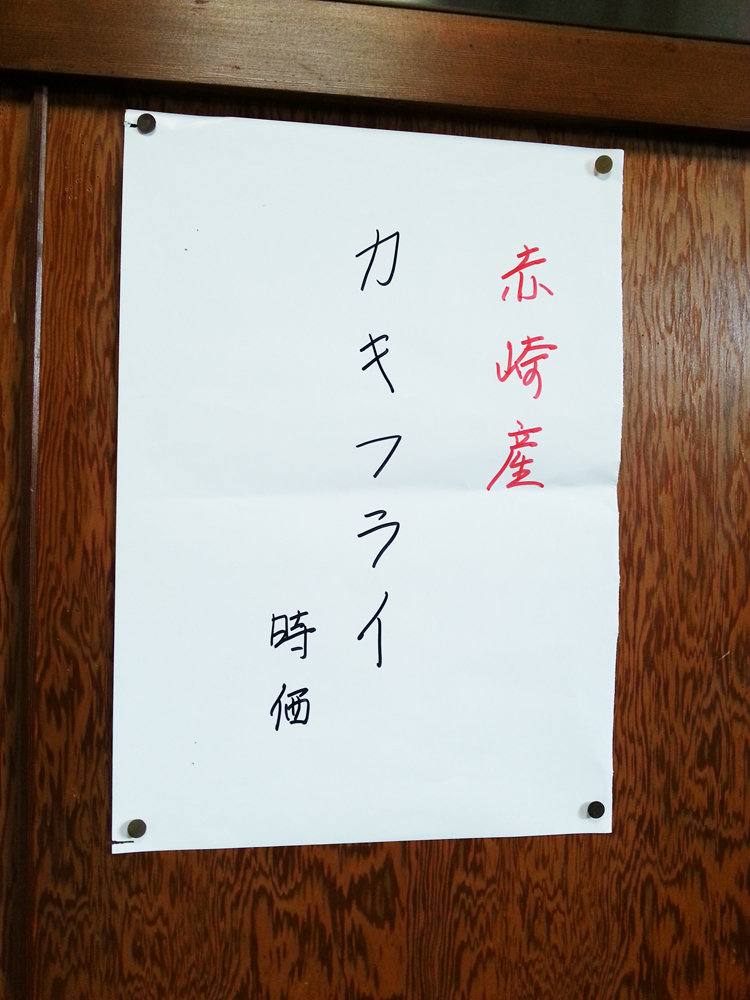 赤崎産
カキフライ
時価